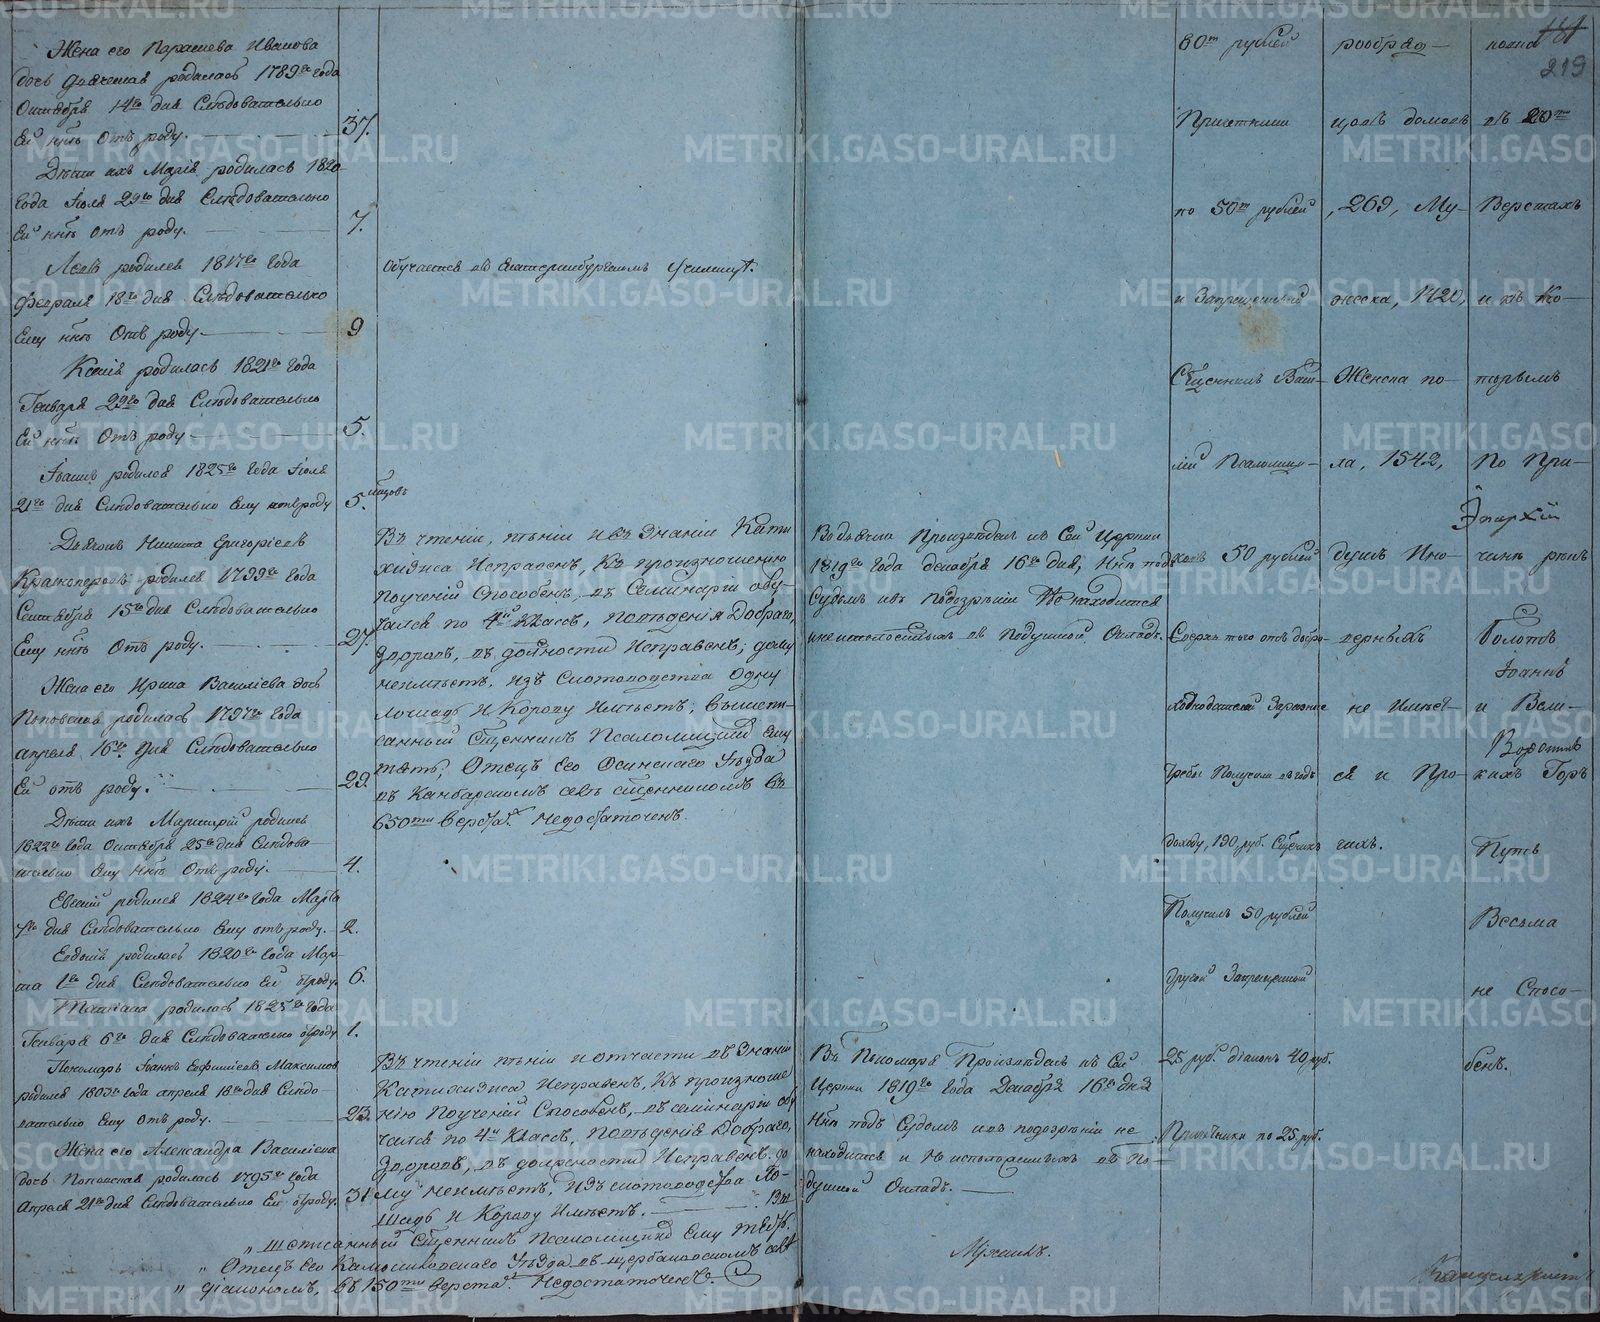 181
219
Жена его Парасева Иванова
дочь родилась 1789го года
Октября 14го дня Следовательно
Ей ннѣ Отъ роду.
37.
Дѣти ихъ Марія родилась 1820
года Іюля 29го дня Следовательно
Ей ннѣ отъ роду.
7.
Левъ родился 1817го года
Февраля 18го дня Слѣдовательно
Ему ннѣ Отъ роду.
9
Ксенія родилась 1821го года
Генваря 29го дня Слѣдовательно
Ей ннѣ Отъ роду
5.
Іоаннъ родился 1825го года Іюля
21го дня Слѣдовательно Ему отъ роду
5. мцовъ
Дьяконъ Никита Григоріевъ
родился 1799го года
Сентября 15го дня Слѣдовательно
Ему ннѣ Отъ роду.
27.
Жена его Ирина Василіева дочь
Поповская родилась 1797го года
апреля 16го дня Слѣдовательно
Ей отъ роду.
29.
Дѣти ихъ родился
1822го года Октября 25го дня Слѣдова
тельно Ему ннѣ Отъ роду.
4.
Евгеній родился 1824го года Марта
дня Слѣдовательно Ему отъ роду.
2.
Евдокія родилась 1820го года Мар-
та 1го дня Слѣдовательно Ей отроду.
6.
Татіана родилась 1825го года
Генваря 6го дня Слѣдовательно отроду
1.
Пономарь Іоаннъ Ефиміевъ Максимов
родился 1803го года апреля 18го дня Слѣдо-
вательно Ему отъ роду.
23.
Жена его Александра Василіева
дочь Поповская родилась 1795го года
Апреля 21го дня Слѣдовательно Ей отроду.
31
Обучается въ Екатеринбургскомъ училищѣ.
Въ чтеніи, пѣніи и въ Знаніи Кати
хизиса Исправенъ, Къ произношенію
поученій Способенъ, въ Семинаріи обу-
чался по 4й Классъ, Поведенія Добраго,
Здоровъ, въ должности Исправенъ; дому
неимѣетъ, изъ Скотоводства Одну
Лошадь и Корову Имѣетъ; вышепи-
санный Сщенникъ Псаломщиковъ Ему
тесть; Отецъ его Осинскаго Уѣзда
въ Камбарскомъ селѣ сщенникомъ въ
650ти верстах. Недостаточенъ.
Въ чтеніи пѣніи и отчасти въ Знаніи
Катихизиса Исправенъ, къ произноше
нію Поученій Способенъ, въ семинаріи обу
чался по 4й Классъ, Поведенія Добраго,
Здоровъ, въ должности Исправенъ. до
му неимѣетъ, изъ скотоводства Ло-
шадь и Корову Имѣетъ. Вы
" шеписанный Сщенникъ Псаломщиковъ Ему тесть.
" Отецъ Его Камышловскаго Уѣзда въ Щербаковскомъ селѣ
" діакономъ, въ 150ти верстах. Недостаточенъ.
Во дьякона Произведенъ къ Сей Церкви
1819го года декабря 16го дня, Ннѣ подъ
Судомъ и въ подозрѣніи Не находится
и въ Подушной Окладъ.
Въ Пономаря Произведенъ къ Сей
Церкви 1819го года Декабря 16го дня
Ннѣ подъ Судомъ и въ подозреніи не
находится и въ По-
душной Окладъ.
Михаилъ.
60т рублей
Причетники
по 50т рублей
и Запрещенный
Сщенникъ Васи-
лій Псаломщи-
ковъ 50 рублей
Сверхъ того отъ добро-
хотнодателей
требы Получили в годъ
доходу, 190 руб. Сщенникъ
Получилъ 50 рублей
другой Запрещенный
25 руб. діаконъ 40 руб.
Причетники по 25 руб.
рообряд-
цовъ домовъ
, 269, Му-
жеска, 1420,
Женска по-
ла, 1542,
душъ Ино-
верныхъ
не Имеет-
ся и Про-
чихъ.
въ 20ти
Верстахъ
и къ Ко-
торымъ
По При-
Епархіи
чинѣ рѣкъ
Болотъ
и Вели-
кихъ Горъ
Путь
Весьма
не Спосо-
бенъ.
METRIKI.GASO-URAL.RU